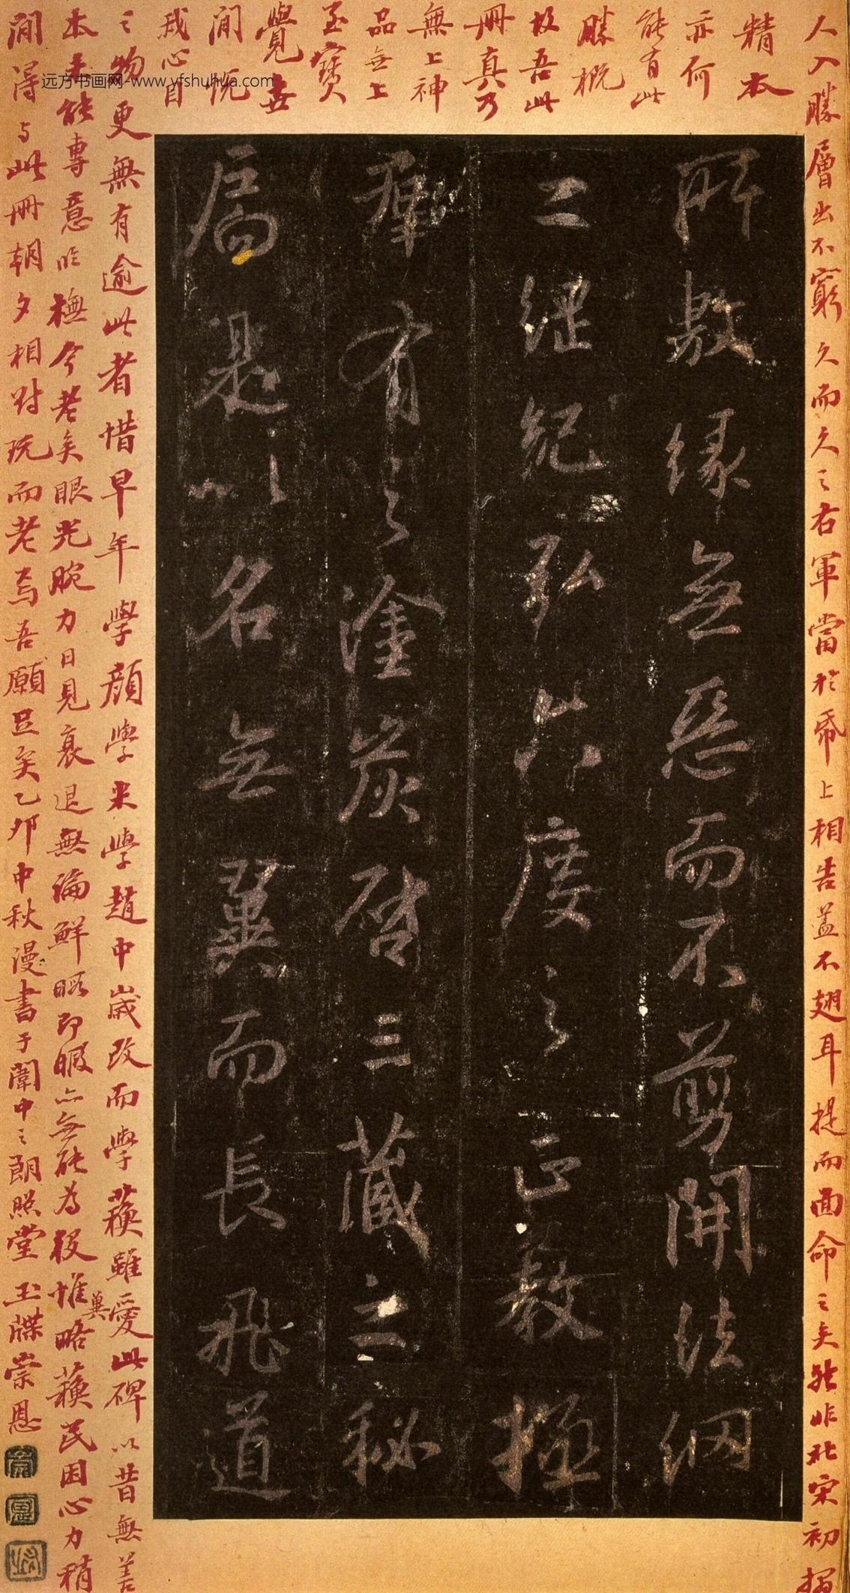 所敷緣無惡而不剪開法網
之綱紀弘六度之正教拯
羣有之塗炭啓三藏之秘
扃是以名無翼而長飛道
人入勝層出不窮久而久之右軍當於帋上相告蓋不翅耳提而面命之矣然非北宋初搨
精本
亦何
能有此
勝概
故吾此
冊真乃
無上神
品無上
至寶
覺世
間沅
我心目
之物更無有逾此者惜早年學顏學米學趙中歲改而學蘇雖愛此碑以昔無善
本未能專意臨橅今老矣眼光腕力日見衰退無論鮮暇即暇亦無能為役惟略蘇民困心力稍
冀
間得與此冊朝夕相對玩而老焉吾願足矣乙卯中秋漫書于闈中之朗照堂玉牒崇恩
远方书画网-www.yfshuhua.com